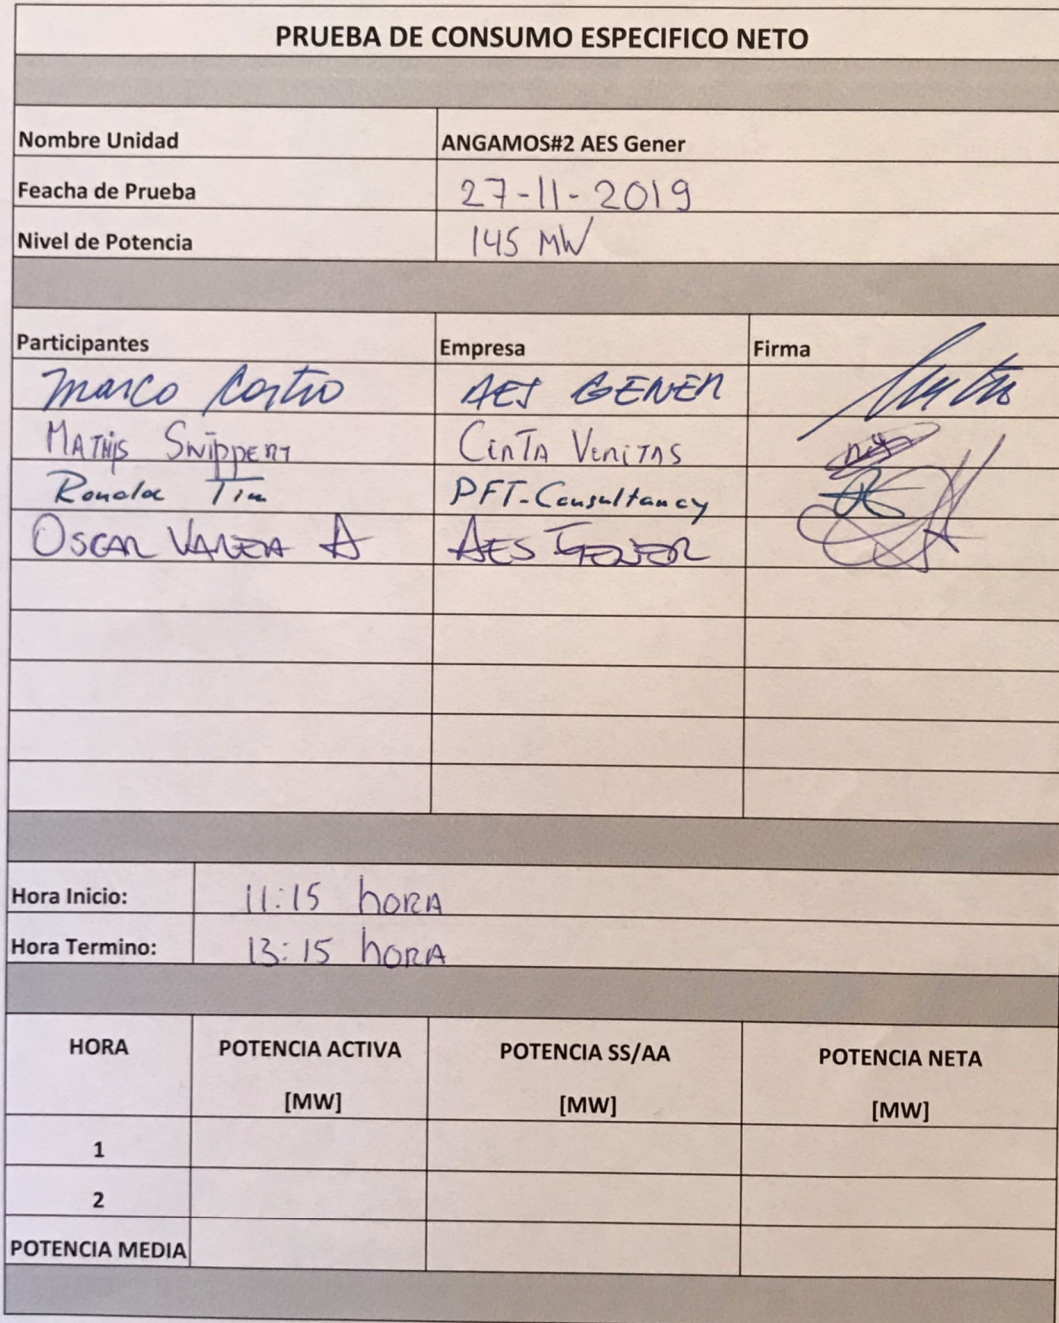 PRUEBA DE CONSUMO ESPECIFICO NETO
Nombre Unidad ANGAMOS#2 AES Gener
Feacha de Prueba 27-11-2019
Nivel de Potencia 145 MW
Participantes Empresa Firma
Marco Castro AES GENER
MATHIS SWIPPERT CERTA VERITAS
Ronald Tim PFT-Consultancy
OSCAR A AES GENER
Hora Inicio: 11:15 hORA
Hora Termino: 13:15 hORA
HORA POTENCIA ACTIVA POTENCIA SS/AA POTENCIA NETA
[MW] [MW] [MW]
1
2
POTENCIA MEDIA